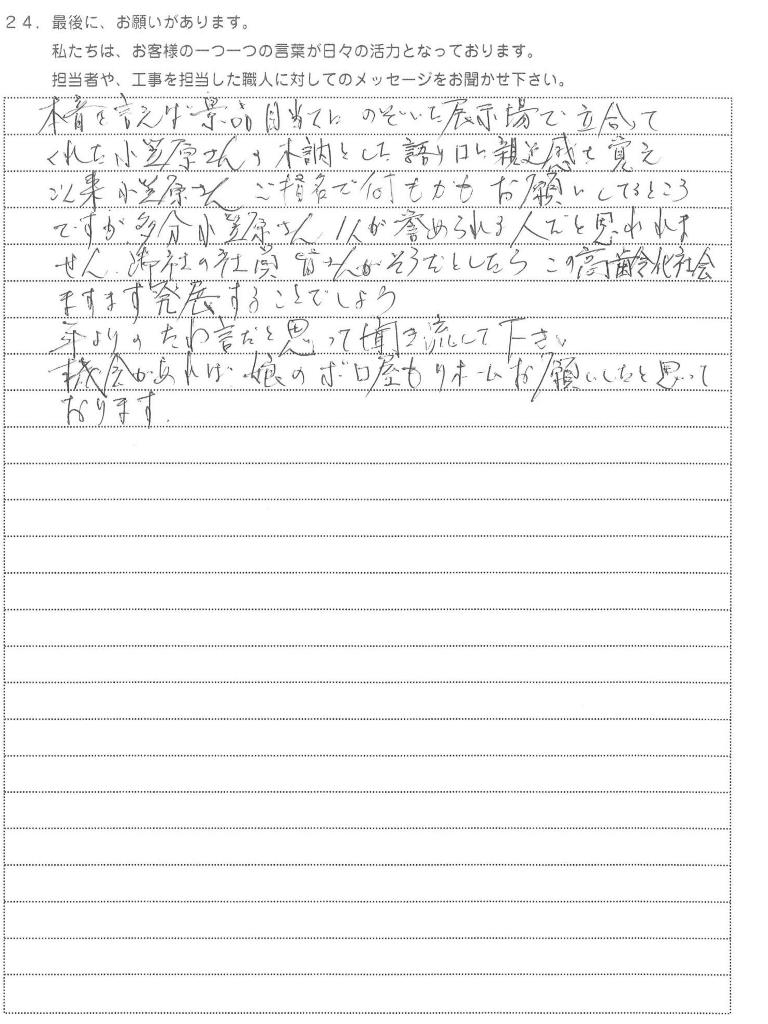 24. 最後に、お願いがあります。
私たちは、お客様の一つ一つの言葉が日々の活力となっております。
担当者や、工事を担当した職人に対してのメッセージをお聞かせ下さい。
本音を言えば景品目当てに のぞいた展示場で立合って
くれた小笠原さんの木訥とした語り口に親近感を覚え
以来小笠原さん ご指名で何もかもお願いしてるところ
ですが多分小笠原さん1人が誉められる人だと思われま
せん、御社の社員皆さんがそうだとしたらこの高齢化社会
ますます発展することでしょう
年よりのたわ言だと思って聞き流して下さい
機会があれば娘のボロ屋もリホームお願いしたと思って
おります.